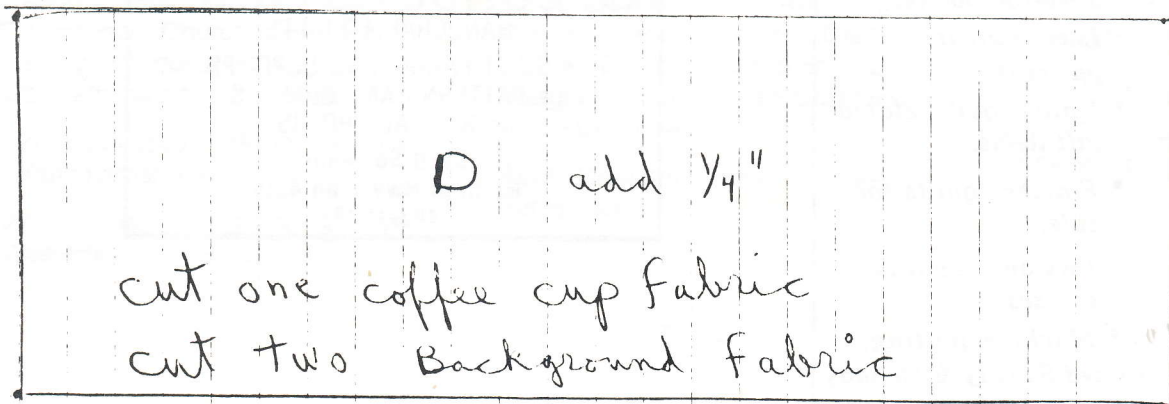 D add 1/4"
cut one coffee cup fabric
cut two Background fabric